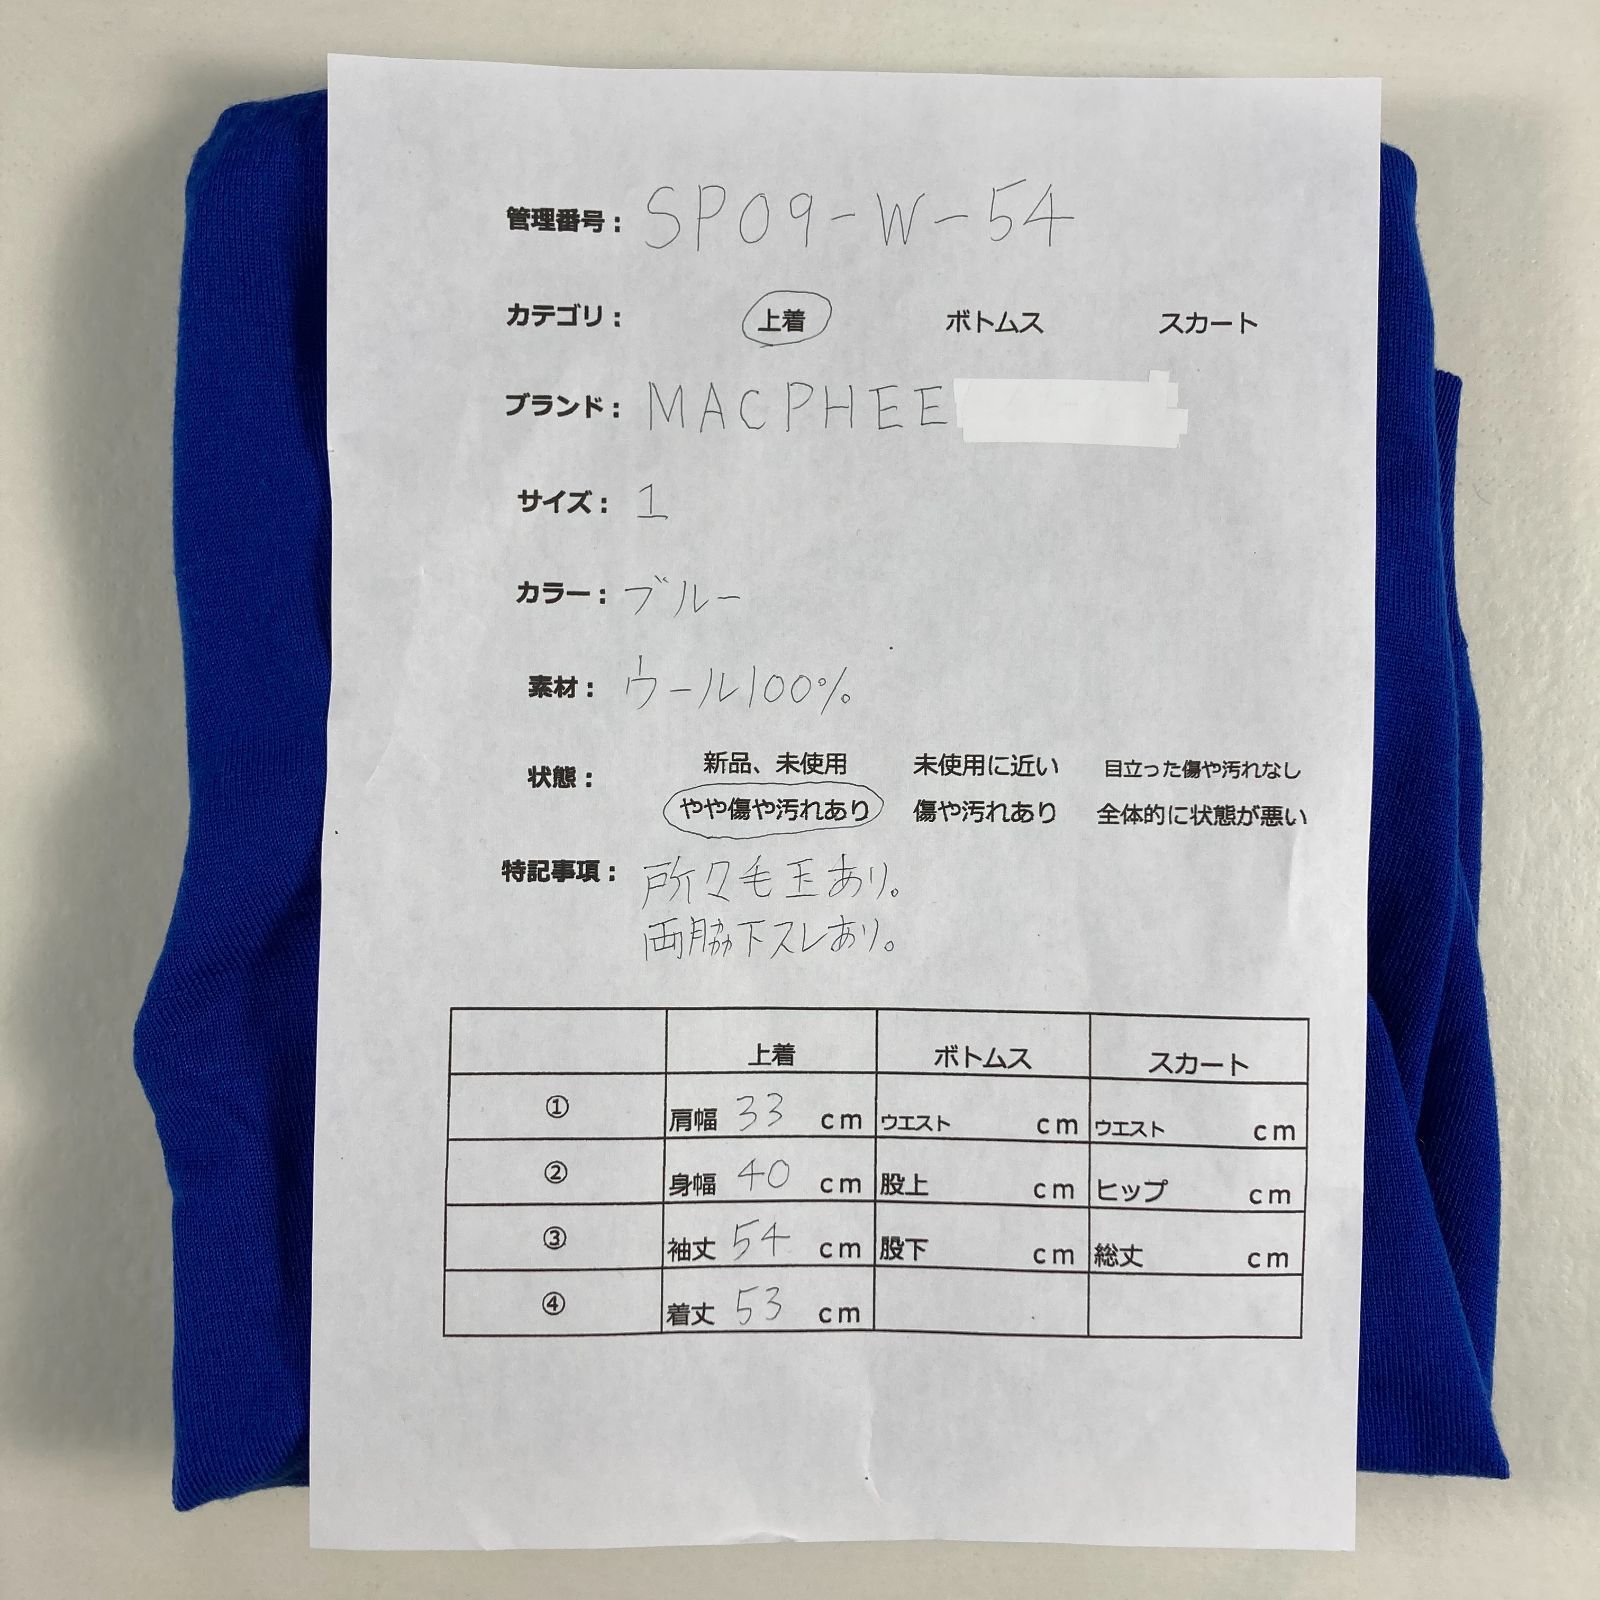 管理番号: SP09-W-54
カテゴリ: 上着 ボトムス スカート
ブランド: MACPHEE
サイズ: 1
カラー: ブルー
素材: ウール100%
状態: 新品、未使用 未使用に近い 目立った傷や汚れなし
やや傷や汚れあり 傷や汚れあり 全体的に状態が悪い
特記事項: 所々毛玉あり。
両脇下スレあり。
上着 ボトムス スカート
① 肩幅 33 cm ウエスト cm ウエスト cm
② 身幅 40 cm 股上 cm ヒップ cm
③ 袖丈 54 cm 股下 cm 総丈 cm
④ 着丈 53 cm